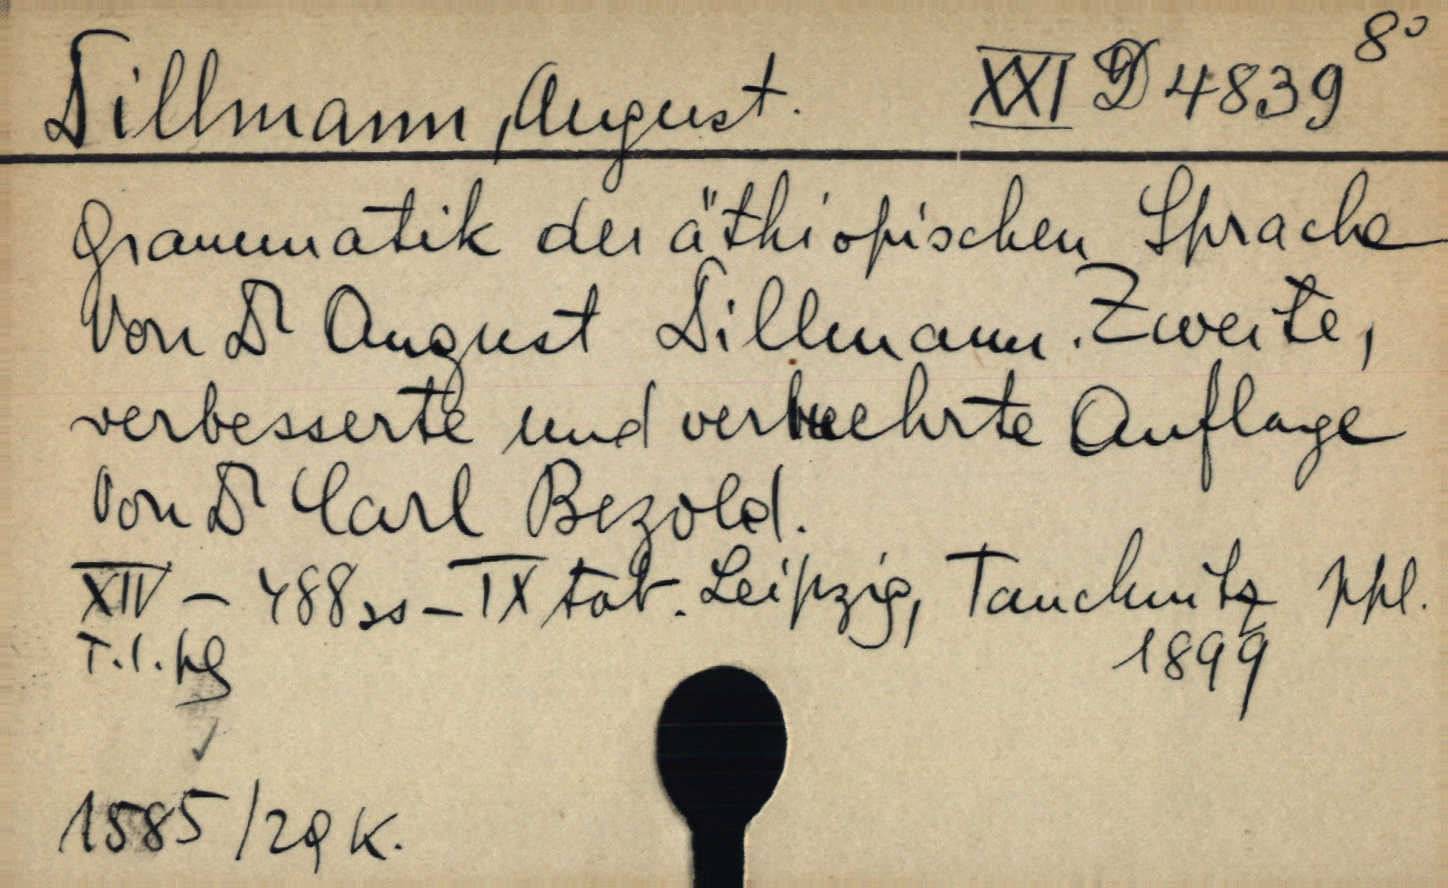 Dillmann, August. XXI D 4839 8°
Grammatik der äthiopischen Sprache
von Dr August Dillmann. Zweite,
verbesserte und vermehrte Auflage
von Dr Carl Bezold.
XIV – 488 ss – IX tab. Leipzig, Tauchnitz ppl.
T.l. pg 1899
1585/29 K.